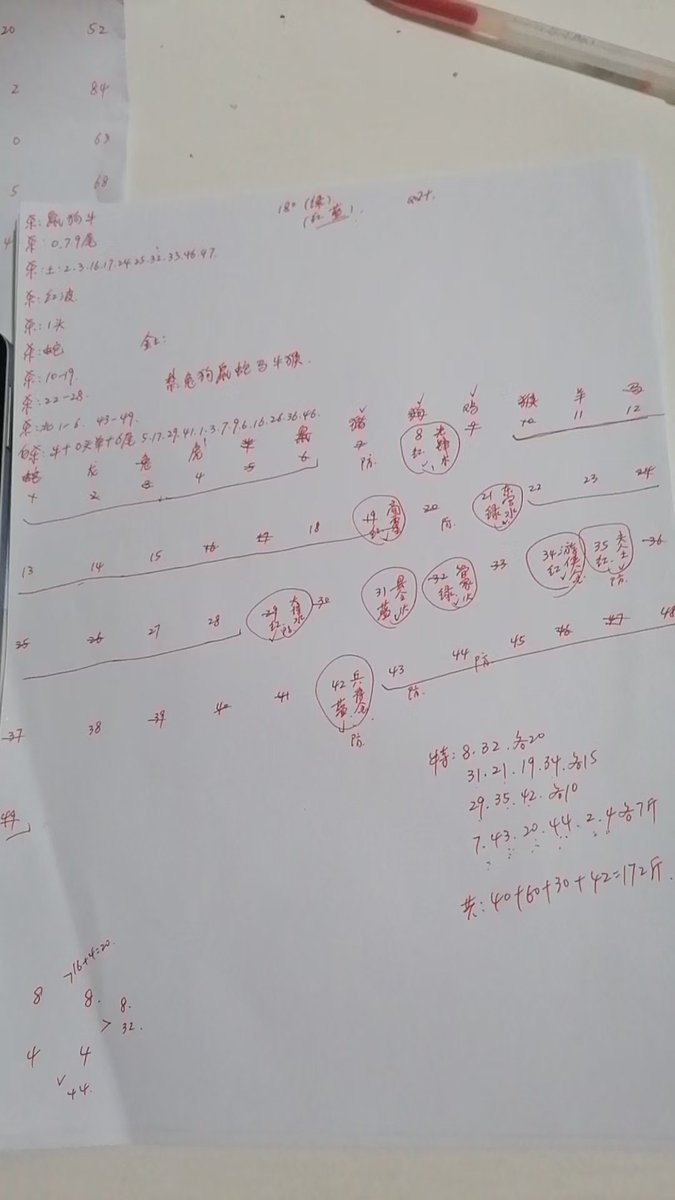 20 52
2 84
0 63
5 68
4
180 (绿)
(红蓝)
杀:鼠狗牛
杀:0.7.9尾
杀:土:2.3.16.17.24.25.32.33.46.47.
杀:红波
杀:1头
杀:蛇
杀:10-19.
禁兔狗鼠蛇马牛猴.
杀:22-28.
杀:地1-6. 43-49.
5.17.29.41.1.3.7.9.6.16.26.36.46.
蛇 龙 兔 虎 牛 鼠 猪 狗 鸡 猴 羊 马
1 2 3 4 5 6 7 防. 8 红 水 9 10 11 12
13 14 15 16 17 18 19 红 20 防. 21 绿 水 22 23 24
25 26 27 28 29 红 水 防 30 31 蓝 火 32 绿 火 33 34 红 金 35 红 土 防. 36
37 38 39 40 41 42 兵 蓝 金 防. 43 防. 44 防. 45 46 47 48
49
特:8.32.各20
31.21.19.34.各15
29.35.42.各10
7.43.20.44.2.4各7斤
共:40+60+30+42=172斤.
16+4=20.
8 8. 8.
> 32.
4 4
44.